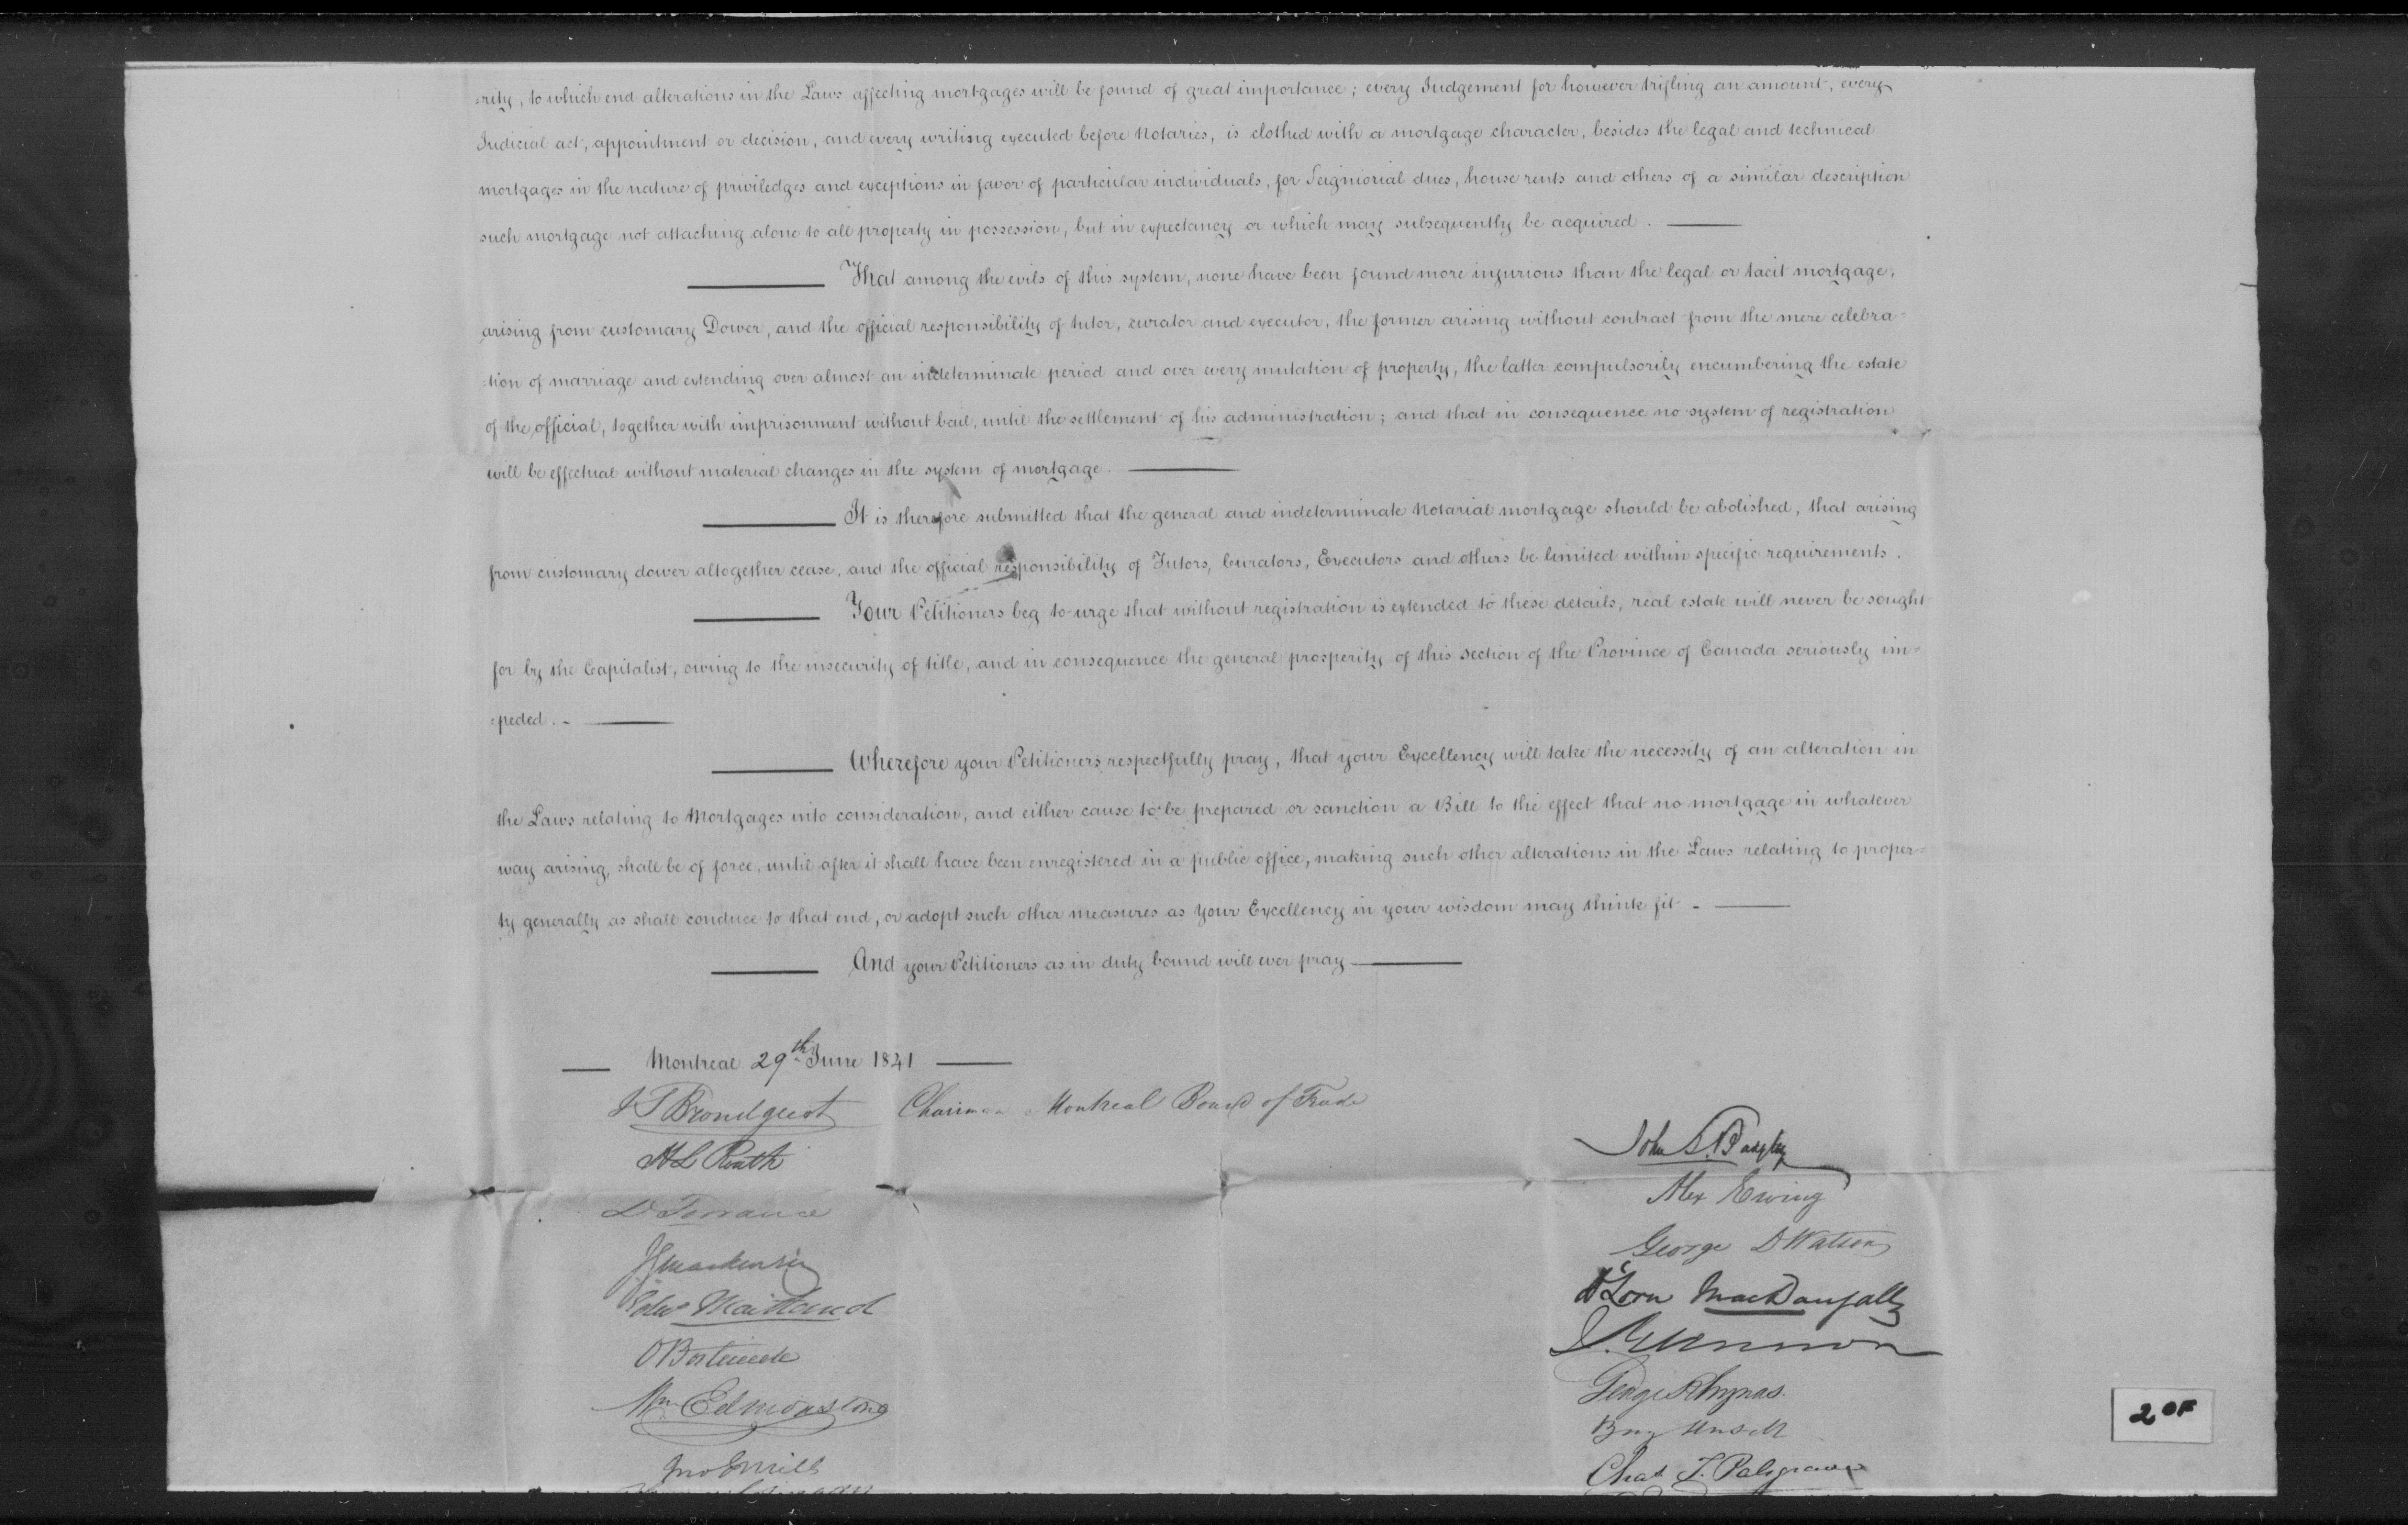 =rity, to which end alterations in the Laws affecting mortgages will be found of great importance; every Judgement for however trifling an amount, every
Judicial act, appointment or decision, and every writing executed before Notaries, is clothed with a mortgage character, besides the legal and technical
mortgages in the nature of priviledges and exceptions in favor of particular individuals, for Seigniorial dues, house rents and others of a similar description
such mortgage not attaching alone to all property in possession, but in expectancy or which may subsequently be acquired.
That among the evils of this system, none have been found more injurious than the legal or tacit mortgage,
arising from customary Dower, and the official responsibility of tutor, curator and executor, the former arising without contract from the mere celebra=
=tion of marriage and extending over almost an indeterminate period and over every mutation of property, the latter compulsorily encumbering the estate
of the official, together with imprisonment without bail, until the settlement of his administration; and that in consequence no system of registration
will be effectual without material changes in the system of mortgage.
It is therefore submitted that the general and indeterminate Notarial mortgage should be abolished, that arising
from customary dower altogether cease, and the official responsibility of Tutors, Curators, Executors and others be limited within specific requirements.
Your Petitioners beg to urge that without registration is extended to these details, real estate will never be sought
for by the Capitalist, owing to the insecurity of title, and in consequence the general prosperity of this section of the Province of Canada seriously im=
=peded.
Wherefore your Petitioners respectfully pray, that your Excellency will take the necessity of an alteration in
the Laws relating to Mortgages into consideration, and either cause to be prepared or sanction a Bill to the effect that no mortgage in whatever
way arising, shall be of force, until after it shall have been enregistered in a public office, making such other alterations in the Laws relating to proper=
ty generally as shall conduce to that end, or adopt such other measures as your Excellency in your wisdom may think fit
And your Petitioners as in duty bound will ever pray
Montreal 29th June 1841
J T Brondgeest Chairman Montreal Board of Trade
H L Routh
D Torrance
J G Mackenzie
Edw Maitland
O Bostwick
Wm Edmonstone
Jno E Mills
John S. Bagley
Alex Ewing
George D Watson
D Lorn MacDougall
George Rhynas
Chas T. Palsgrave
2 OF